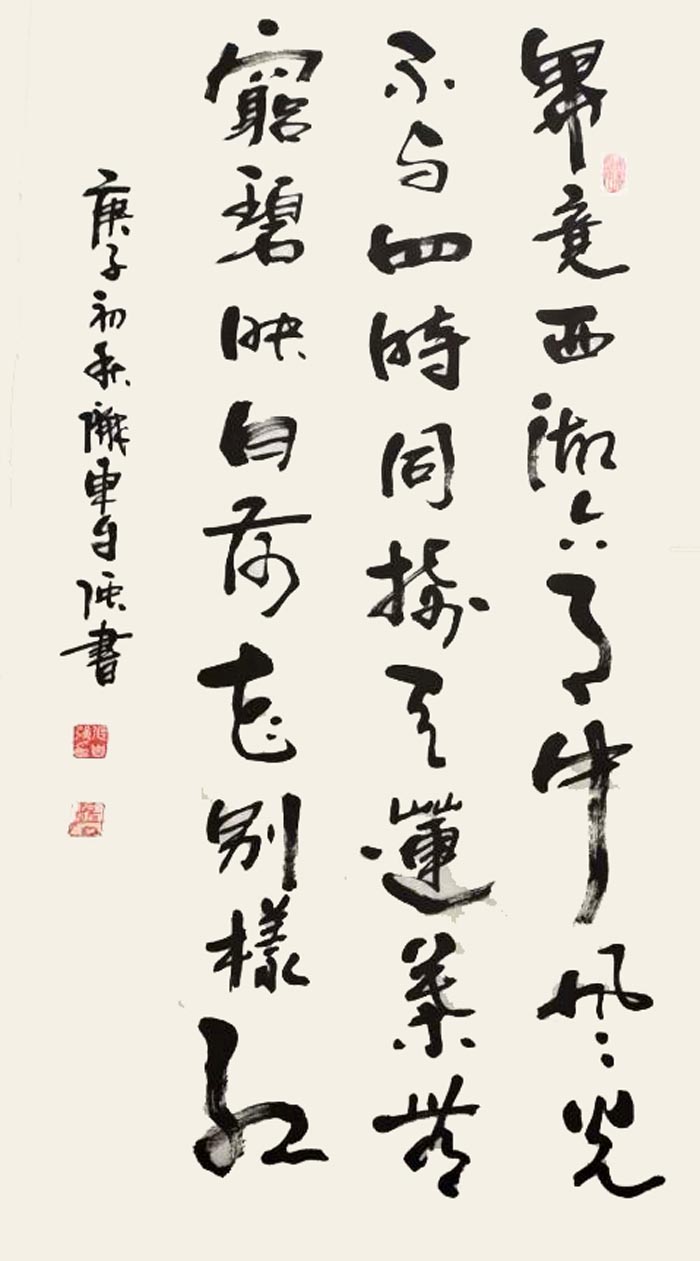 畢竟西湖六月中風光
不与四時同接天蓮葉無
窮碧映日荷花別樣紅
庚子初秋書